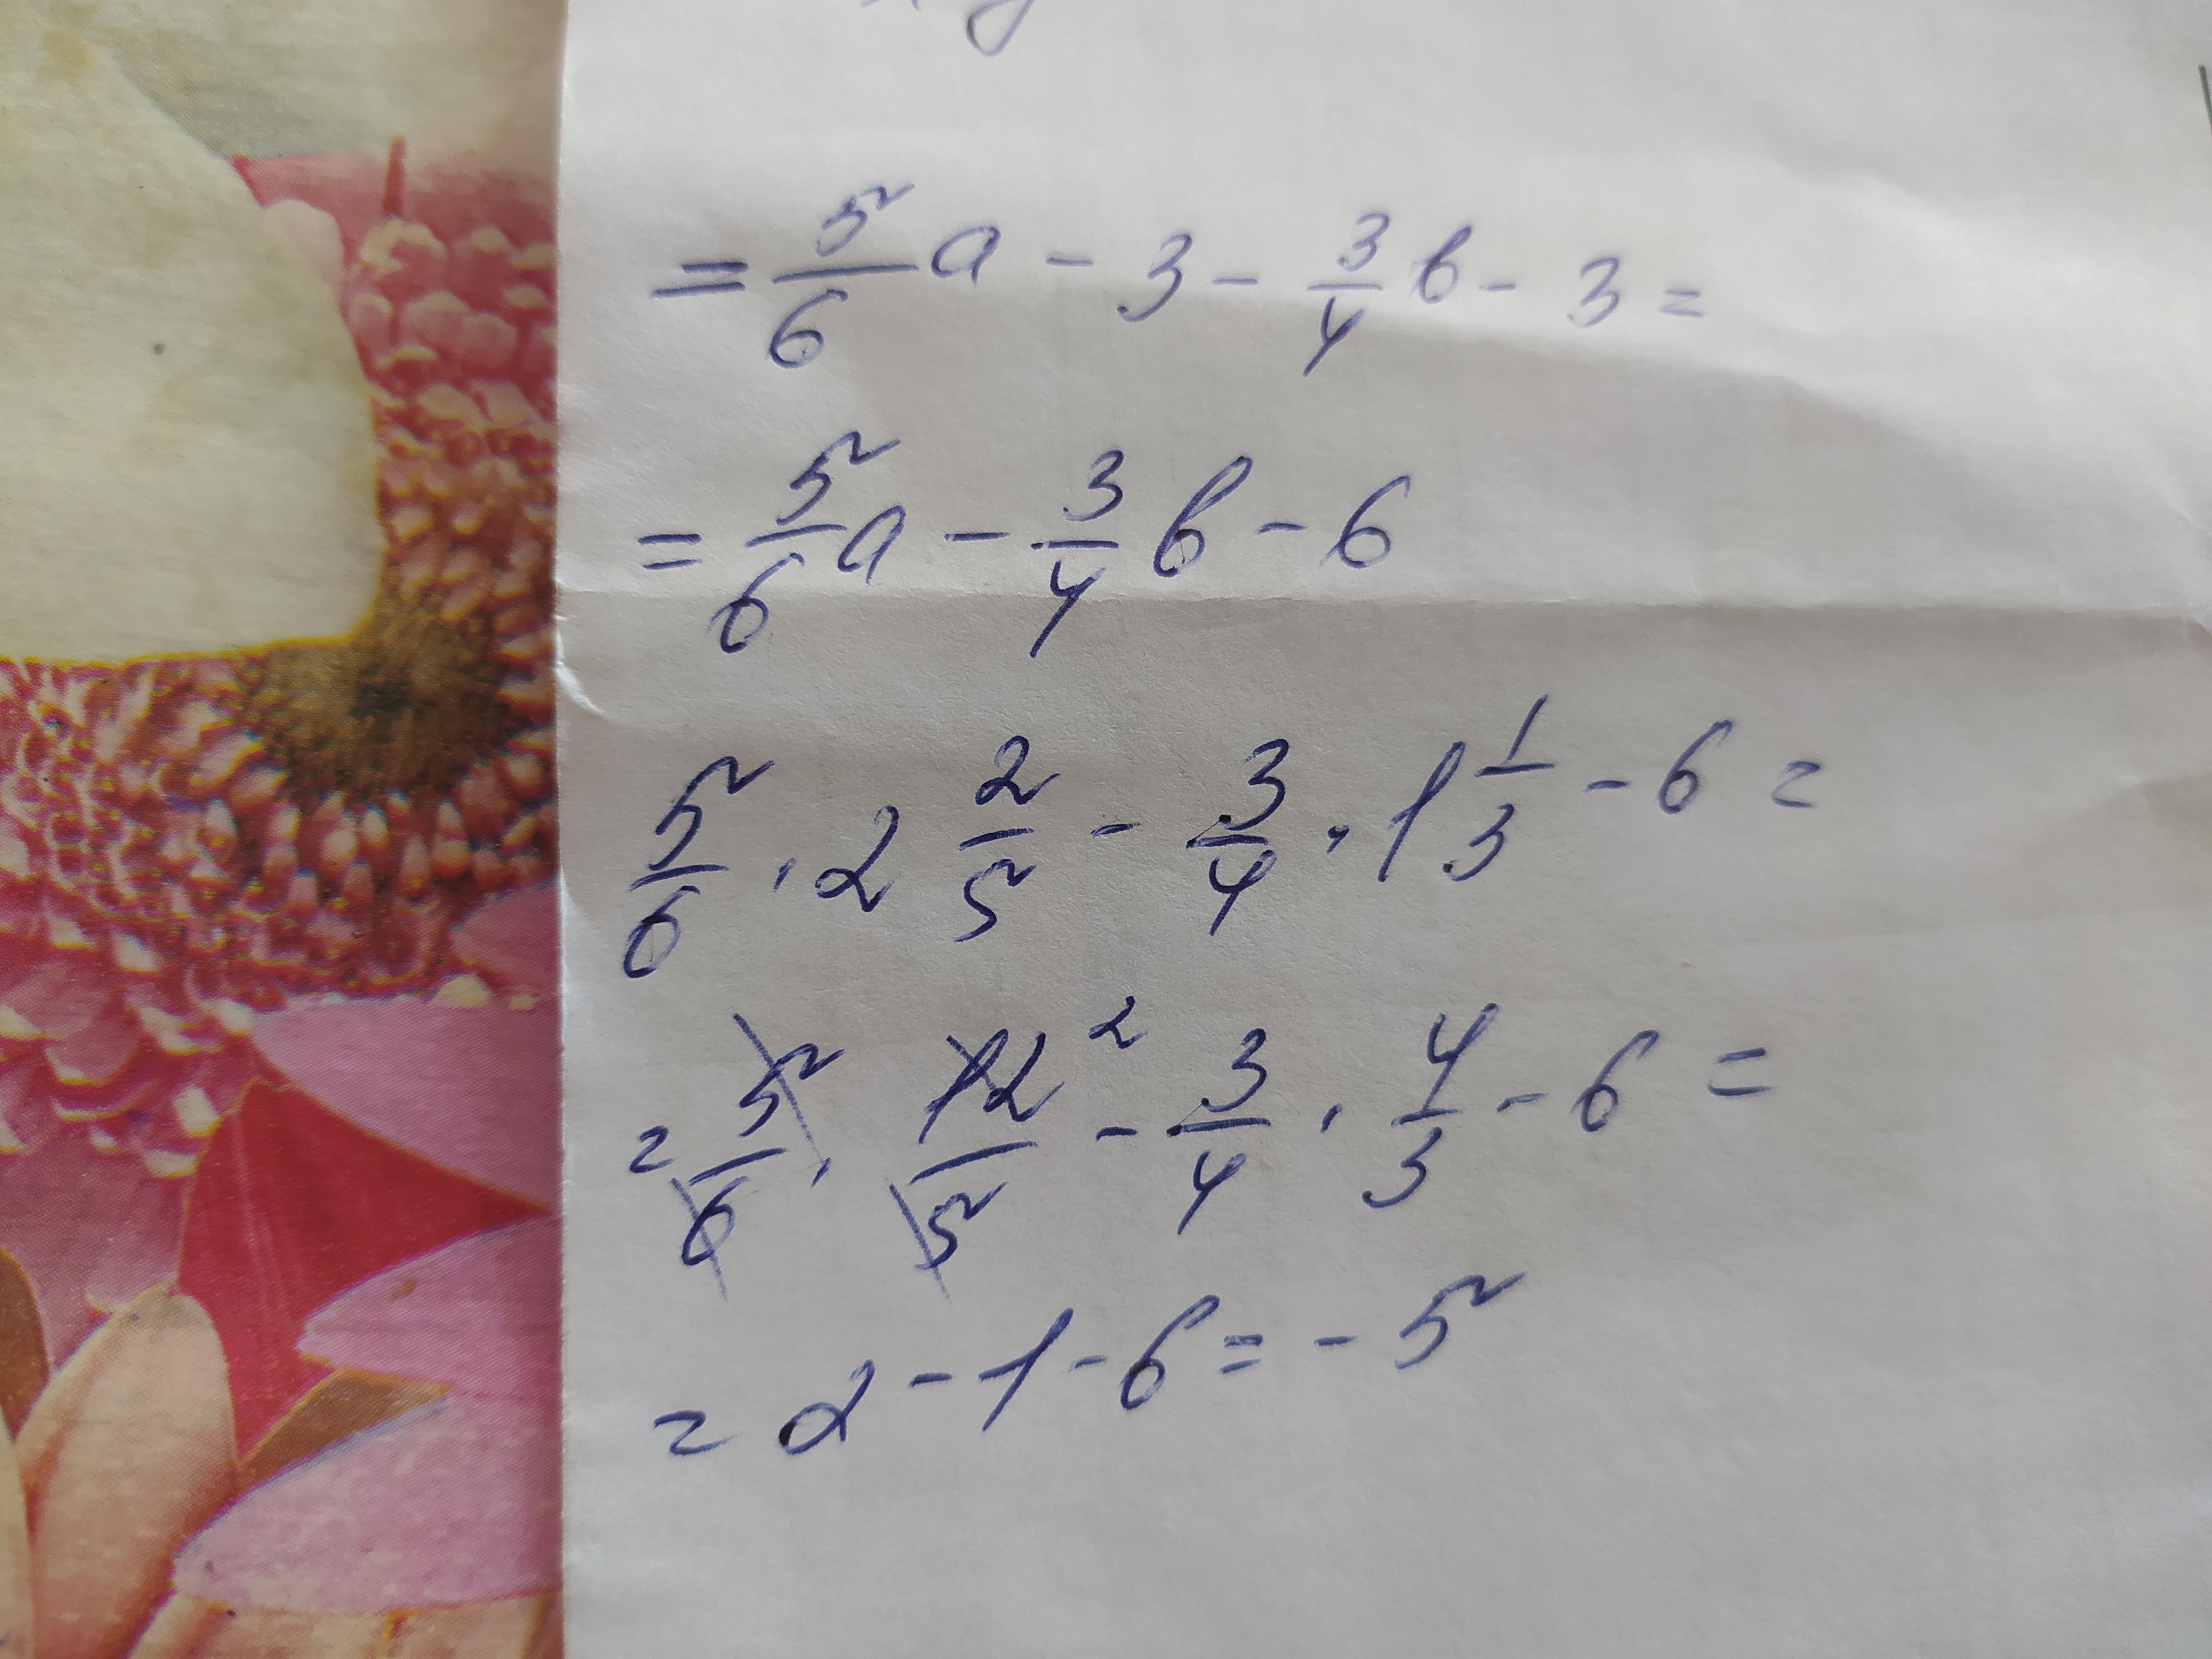 = 5/6 a - 3 - 3/4 в - 3 =
= 5/6 a - 3/4 в - 6
5/6 · 2 2/5 - 3/4 · 1 1/3 - 6 =
= 5/6 · 12/5 2 - 3/4 · 4/3 - 6 =
= 2 - 1 - 6 = - 5